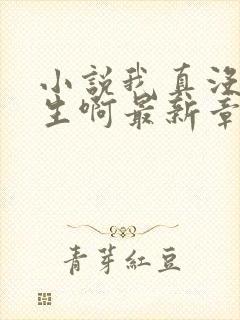 小説我真没
生啊最新章
青芽紅豆